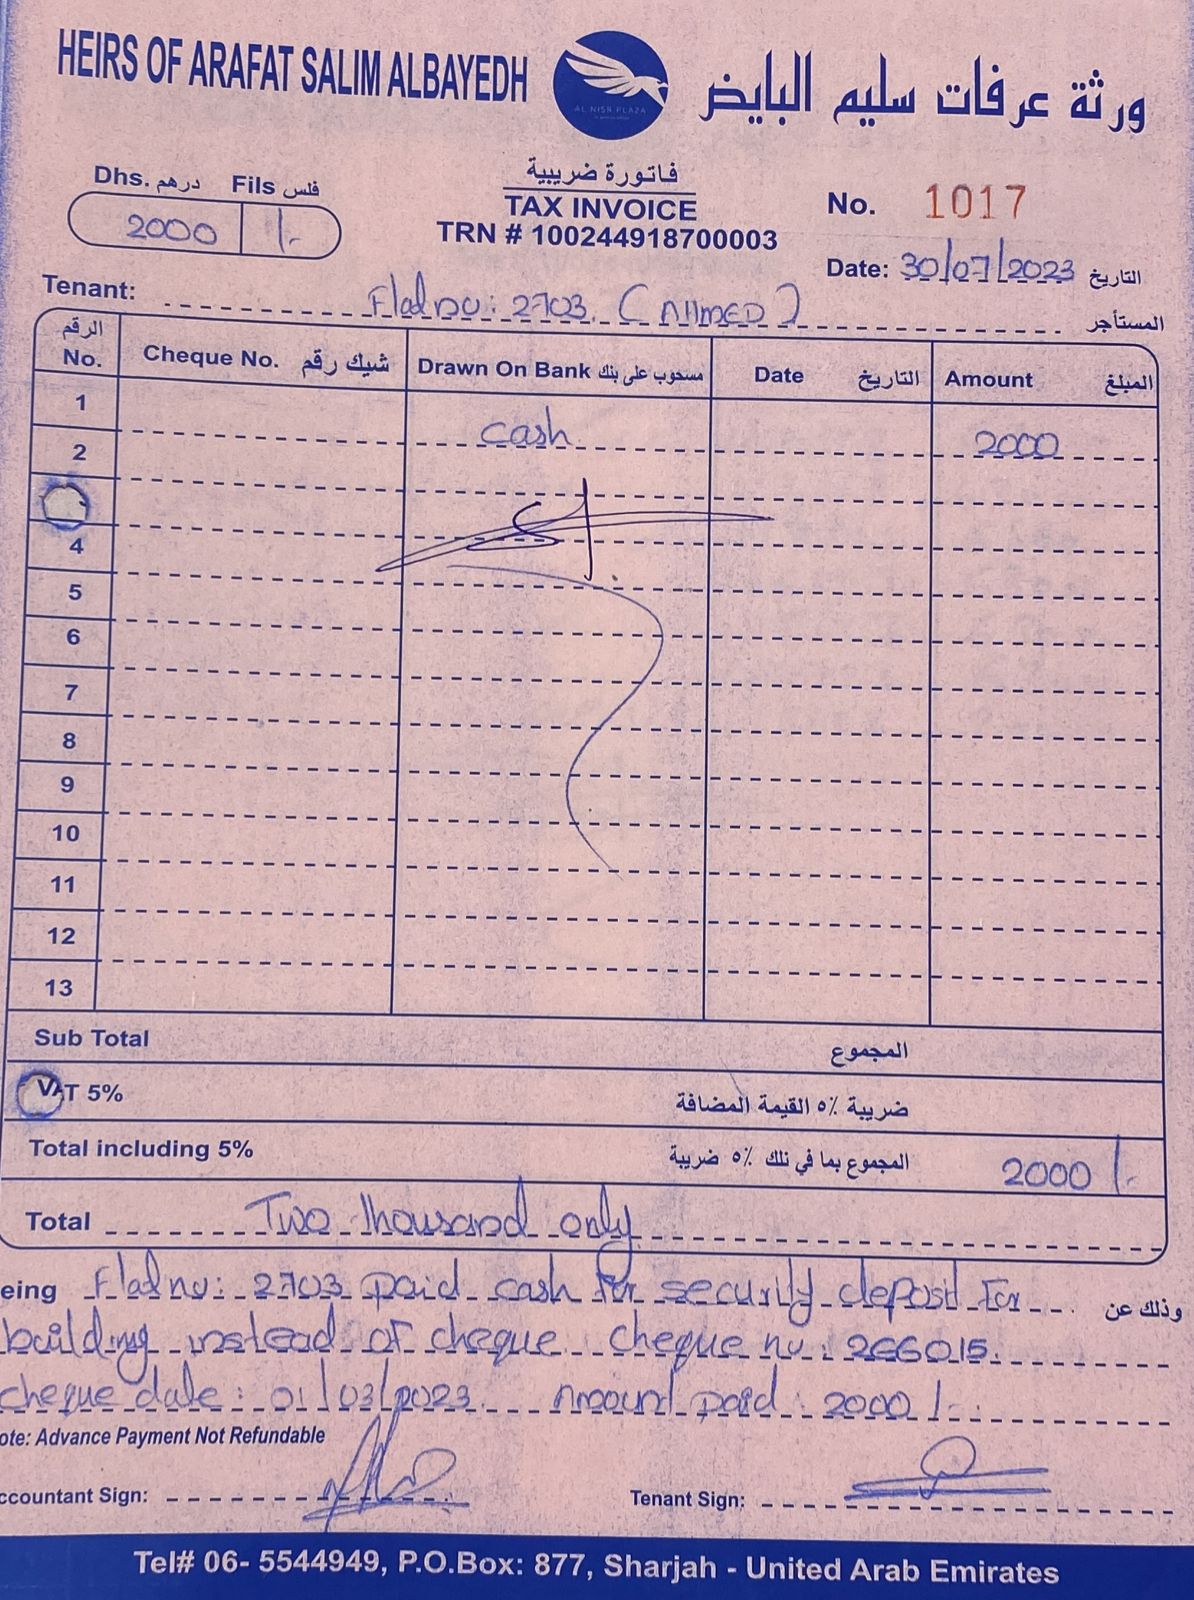 HEIRS OF ARAFAT SALIM ALBAYEDH
AL NISR PLAZA
ورثة عرفات سليم البايض
فاتورة ضريبية
TAX INVOICE
TRN # 100244918700003
Dhs. درهم Fils فلس
2000 /-
No. 1017
Date: 30/07/2023 التاريخ
Tenant: Flat no: 2703 (AHMED) المستأجر
الرقم No. Cheque No. شيك رقم Drawn On Bank مسحوب على بنك Date التاريخ Amount المبلغ
1 cash 2000
2
4
5
6
7
8
9
10
11
12
13
Sub Total المجموع
VAT 5% ضريبة ٥٪ القيمة المضافة
Total including 5% المجموع بما في تلك ٥٪ ضريبة 2000 /-
Total Two thousand only
eing Flat no: 2703 paid cash for security deposit For وذلك عن
building instead of cheque cheque no: 266015.
cheque date: 01/03/2023 Amount paid: 2000/-
ote: Advance Payment Not Refundable
ccountant Sign: Tenant Sign:
Tel# 06- 5544949, P.O.Box: 877, Sharjah - United Arab Emirates